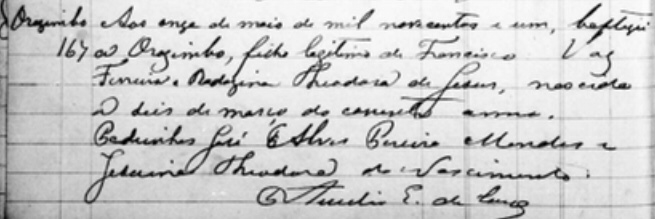 Orozimbo Aos onze de maio de mil novecentos e um, baptizei
167 a Orozimbo, filho legitimo de Francisco Vaz
Ferreira e Theodora de Jesus, nascido
a deis de março do corrente anno.
Padrinhos José Alves Pereira Mendes e
Jesuina Theodora do Nascimento.
Aurelio E. de